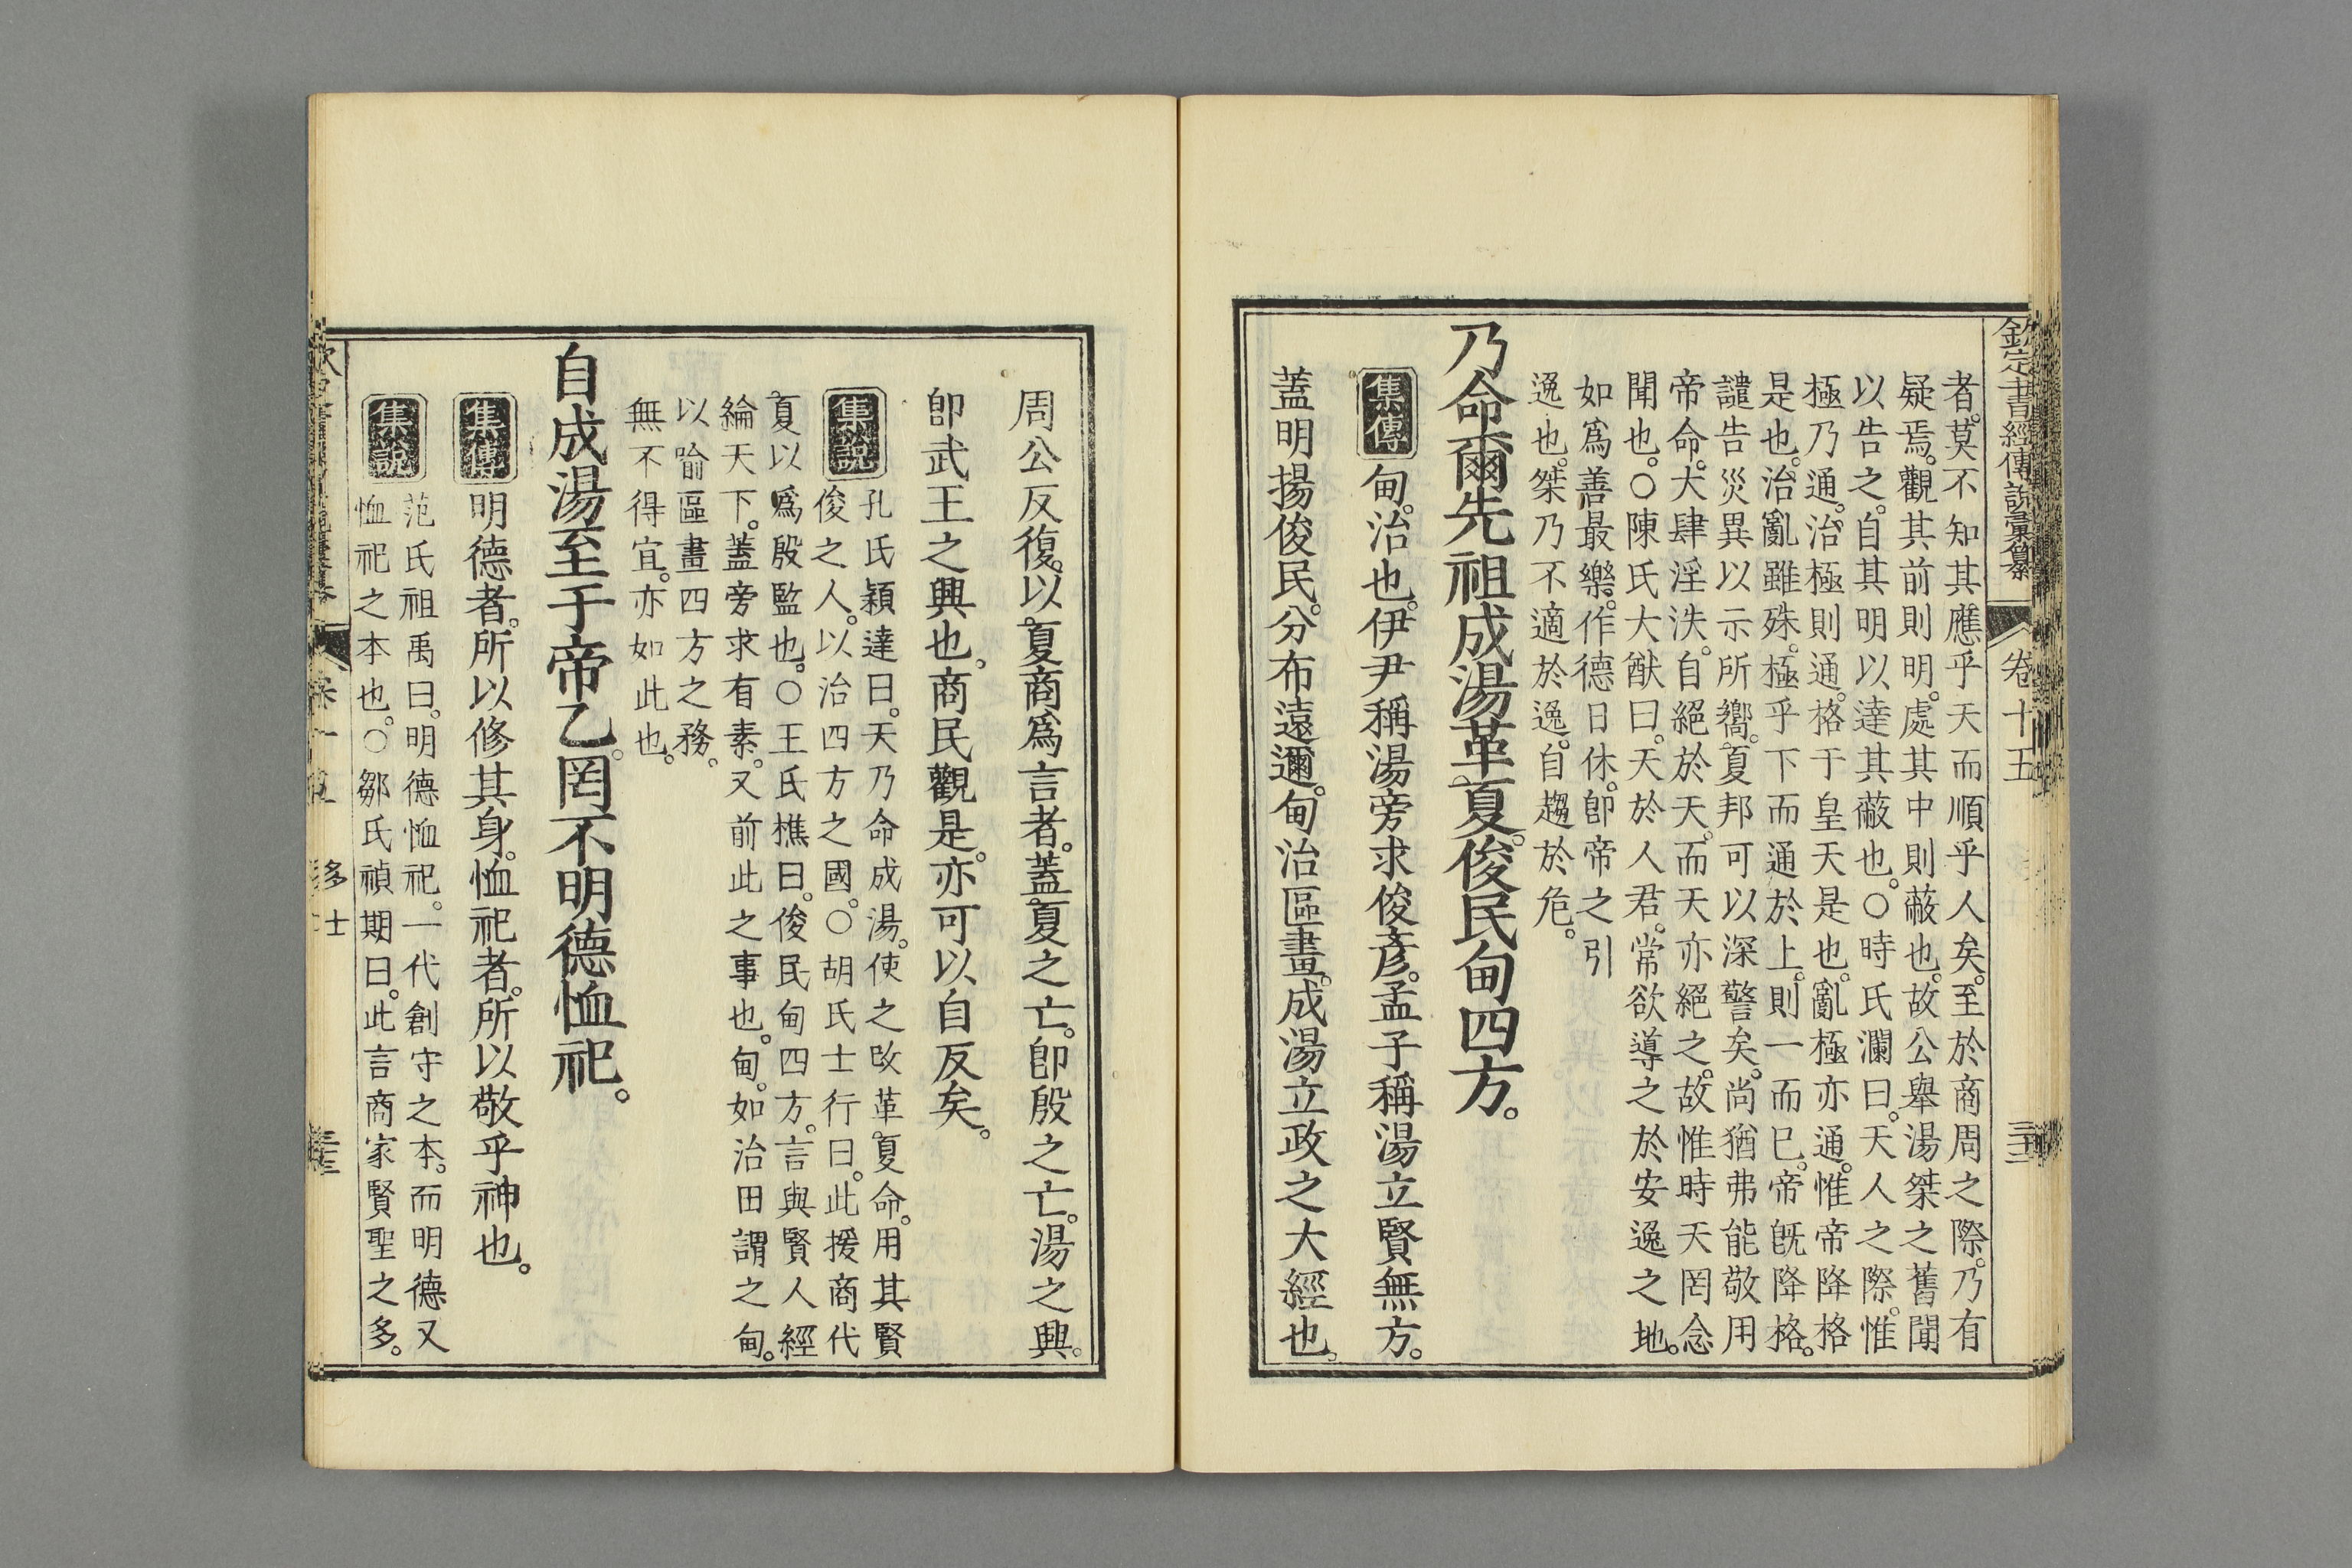 欽定書經傳說彙纂 卷十五
者。莫不知其應乎天而順乎人矣。至於商周之際。乃有
疑焉。觀其前則明。處其中則蔽也。故公舉湯桀之舊聞
以告之。自其明以達其蔽也。○時氏瀾曰。天人之際。惟
極乃通。治極則通。格于皇天是也。亂極亦通。惟帝降格
是也。治亂雖殊。極乎下而通於上。則一而已。帝旣降格。
譴告災異以示所嚮。夏邦可以深警矣。尚猶弗能敬用
帝命。大肆淫泆。自絕於天。而天亦絕之。故惟時天罔念
聞也。○陳氏大猷曰。天於人君。常欲導之於安逸之地。
如爲善最樂。作德日休。卽帝之引
逸也。桀乃不適於逸。自趨於危。
乃命爾先祖成湯革夏。俊民甸四方。
集傳 甸。治也。伊尹稱湯旁求俊彥。孟子稱湯立賢無方。
蓋明揚俊民。分布遠邇。甸治區畫。成湯立政之大經也。
周公反復。以夏商爲言者。蓋夏之亡。卽殷之亡。湯之興。
卽武王之興也。商民觀是。亦可以自反矣。
集說 孔氏穎達曰。天乃命成湯。使之改革夏命。用其賢
俊之人。以治四方之國。○胡氏士行曰。此援商代
夏以爲殷監也。○王氏樵曰。俊民甸四方。言與賢人經
綸天下。蓋旁求有素。又前此之事也。甸。如治田謂之甸。
以喻區畫四方之務。
無不得宜。亦如此也。
自成湯至于帝乙。罔不明德恤祀。
集傳 明德者。所以修其身。恤祀者。所以敬乎神也。
集說 范氏祖禹曰。明德恤祀。一代創守之本。而明德又
恤祀之本也。○鄒氏禎期曰。此言商家賢聖之多。
多士